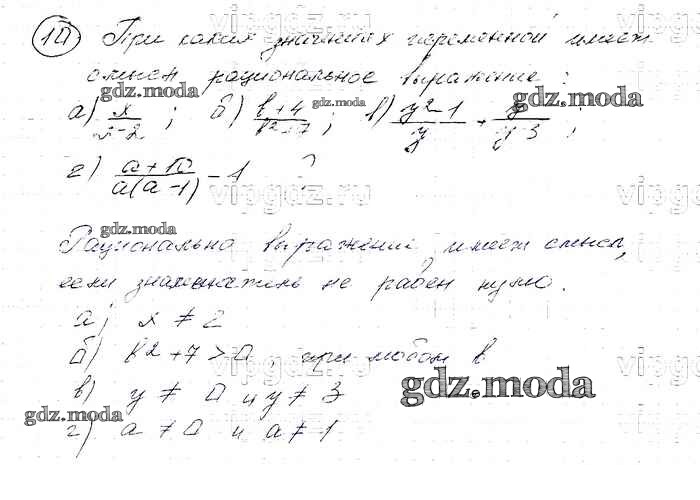 10 При каких значениях переменной имеет
смысл рациональное выражение:
а) x/(x-2); б) (b+4)/(b²+7); в) (y²-1)/y + y/(y-3);
г) (a+10)/(a(a-1)) - 1 ?
Рационально выражение, имеет смысл,
если знаменатель не равен нулю.
а) x ≠ 2
б) b²+7>0, при любом b
в) y ≠ 0 и y ≠ 3
г) a ≠ 0 и a ≠ 1
gdz.moda
gdz.moda
gdz.moda
gdz.moda
gdz.moda
gdz.moda
vipgdz.ru
vipgdz.ru
vipgdz.ru
vipgdz.ru